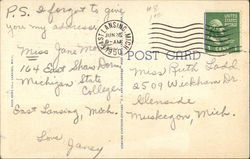 P.S. I forgot to give
you my address.
Miss Jane
164 East Shaw Dorm
Michigan State
College
East Lansing, Mich.
Love
Janey
EAST LANSING, MICH.
JUN 26
6-AM
1950
POST CARD
Miss Ruth Ladd
2509 Wickham Dr
Glenside
Muskegon, Mich.